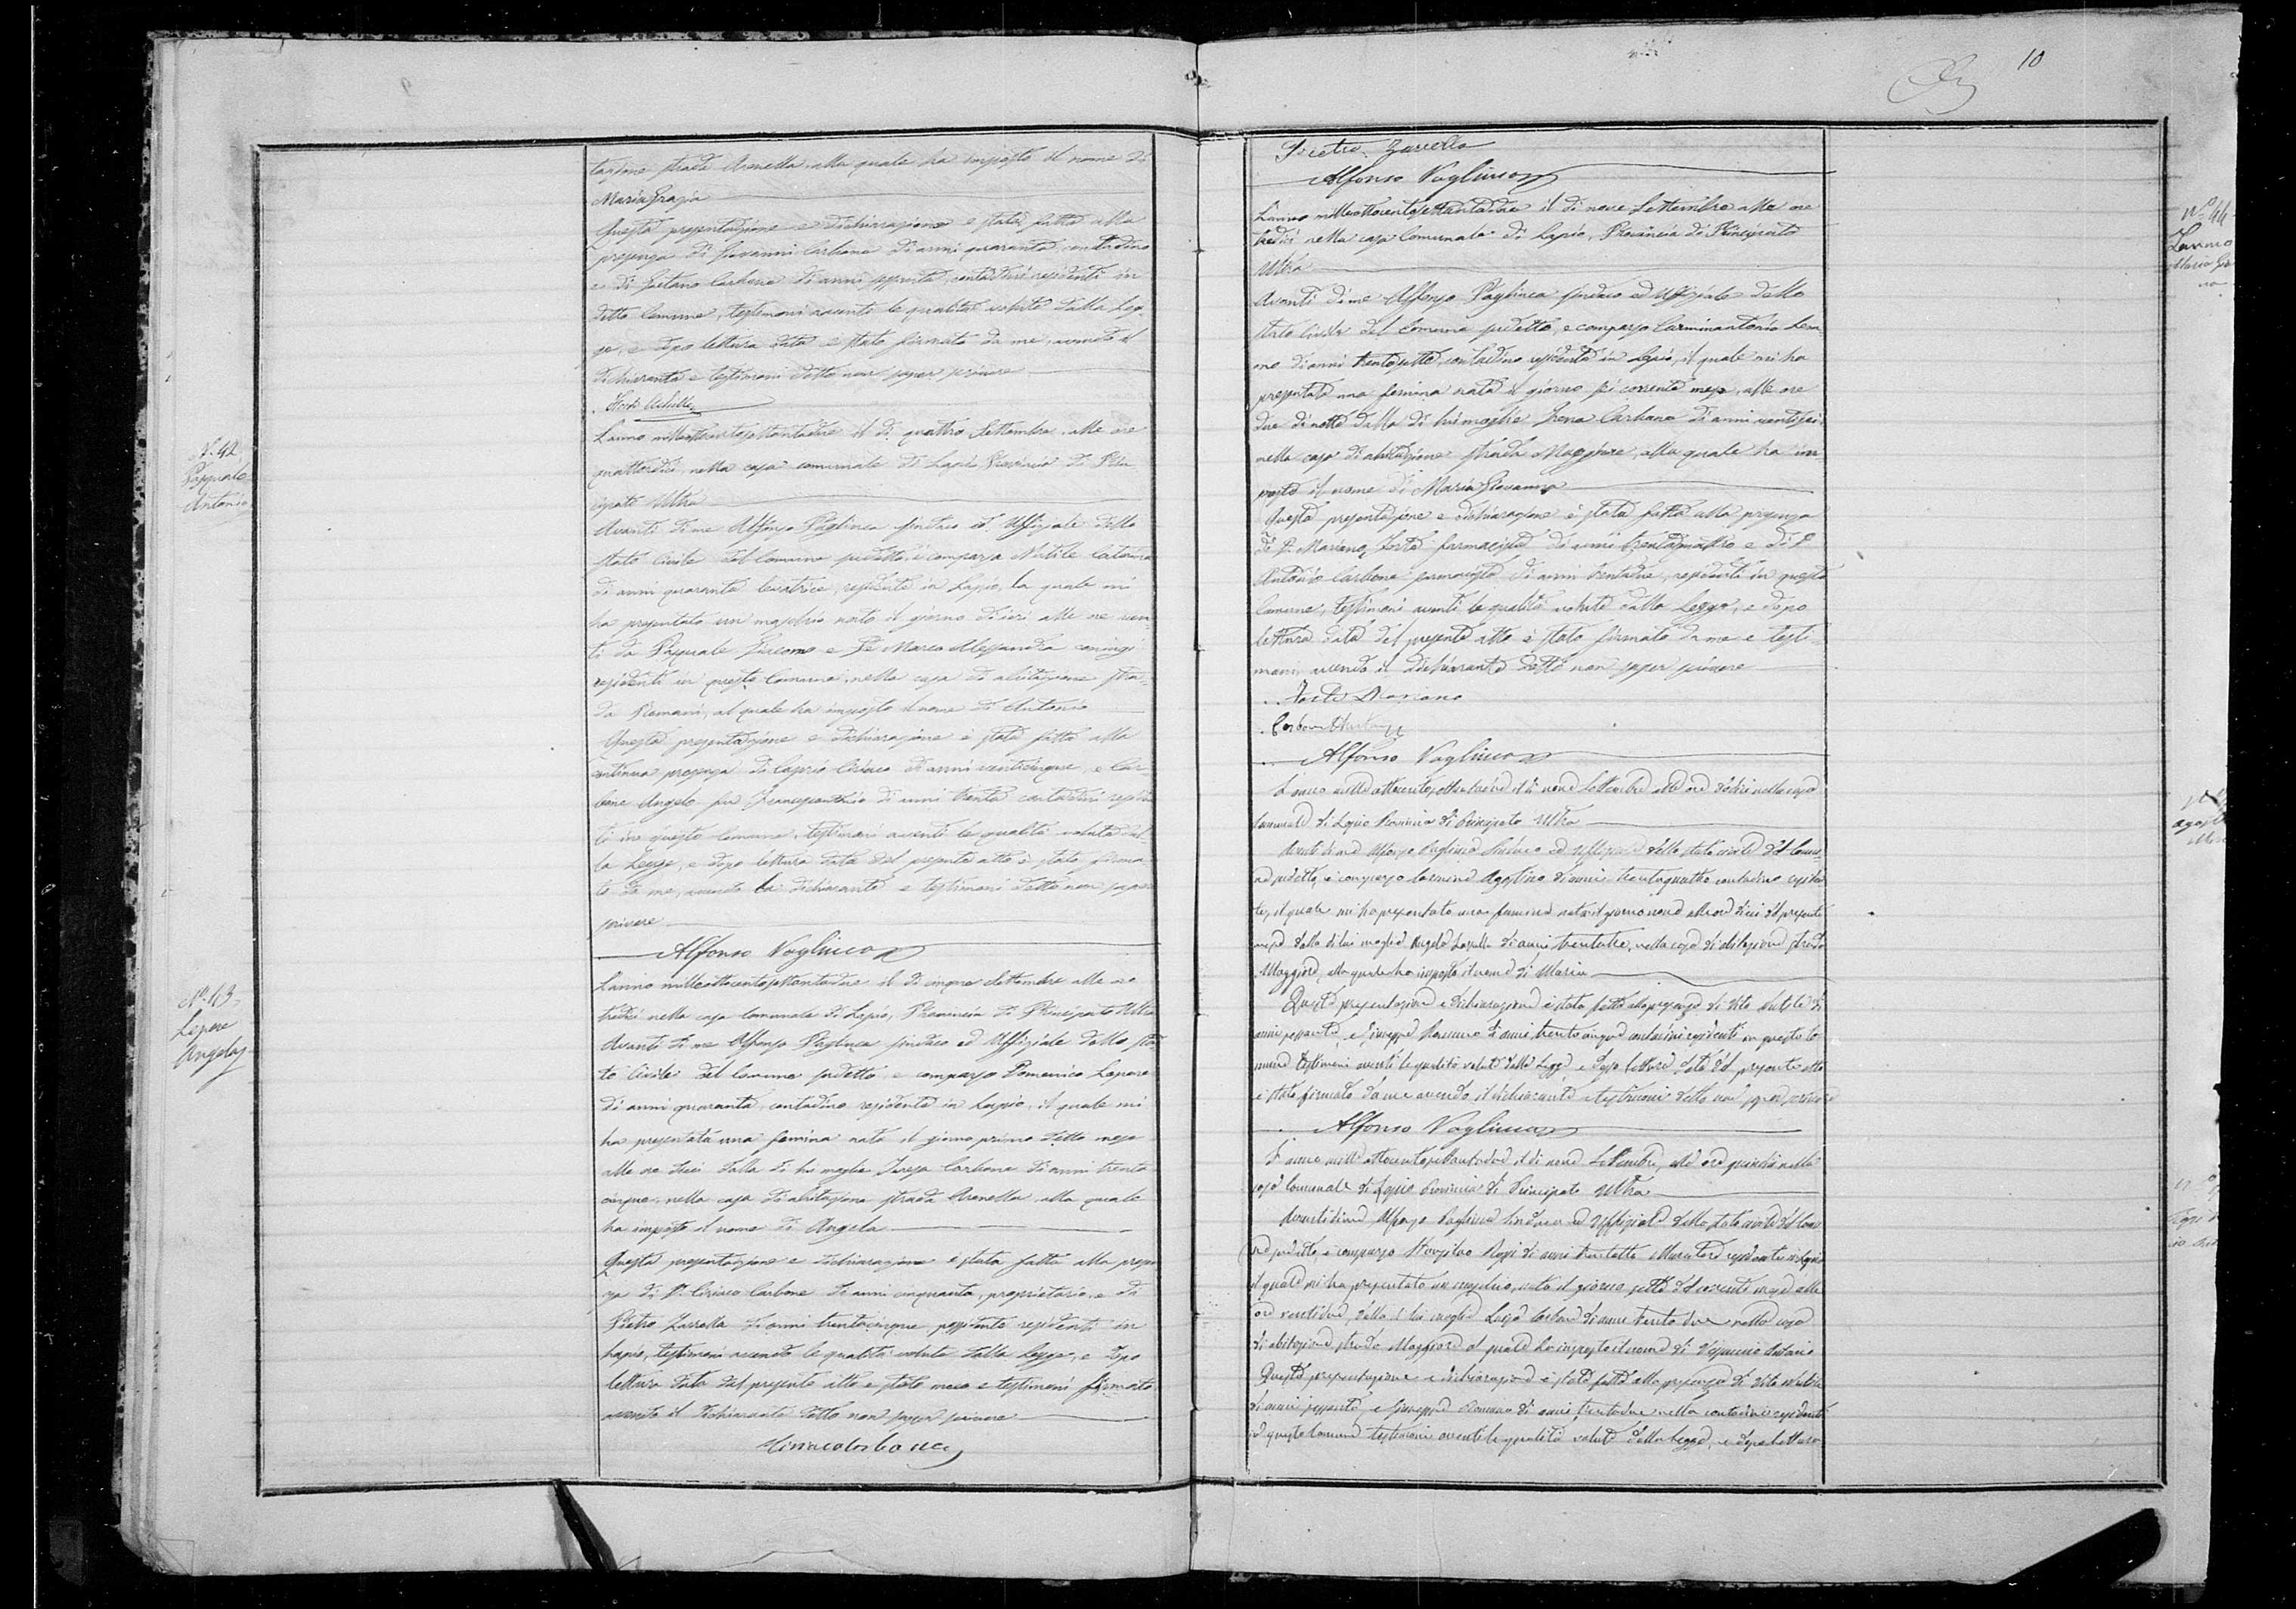 10
tazione strada Arenella, alla quale ha imposto il nome di
Maria Grazia
Questa presentazione e dichiarazione è stata fatta alla
presenza di Giovanni Carbone di anni quaranta, contadino
e di Gaetano Carbone di anni sessanta, contadini residenti in
detto Comune, testimoni aventi le qualità volute dalla Leg
ge, e dopo lettura data è stato firmato da me, avendo il
dichiarante e testimoni detto non saper scrivere
Forte Achille
N. 42
Pasquale
Antonio
L'anno milleottocentosettantadue il dì quattro Settembre alle ore
quattordici, nella casa comunale di Lapio Provincia di Prin
cipato Ultra
Avanti di me Alfonso Vaglinca sindaco ed Uffiziale dello
stato Civile del Comune sudetto, è comparsa Notile Caterina
di anni quaranta levatrice, residente in Lapio, la quale mi
ha presentato un maschio nato il giorno di ieri alle ore ven
ti da Pasquale Giacomo e De Marco Alessandra coniugi
residenti in questo Comune, nella casa di abitazione stra
da Romani, al quale ha imposto il nome di Antonio
Questa presentazione e dichiarazione è stata fatta alla
continua presenza di Caprio Ciriaco di anni venticinque, e Car
bone Angelo fu Francescantonio di anni trenta contadini residen
ti in questo Comune, testimoni aventi le qualità volute dal
la Legge, e dopo lettura data del presente atto è stato firma
to da me, avendo la dichiarante e testimoni detto non saper
scrivere
Alfonso Vaglinca
N. 43
Lepore
Angela
L'anno milleottocentosettantadue il dì cinque Settembre alle ore
tredici nella casa Comunale di Lapio, Provincia di Principato Ultra
Avanti di me Alfonso Vaglinca sindaco ed Uffiziale dello sta
to Civile del Comune sudetto, è comparso Domenico Lepore
di anni quaranta, contadino residente in Lapio, il quale mi
ha presentata una femina nata il giorno primo detto mese
alle ore dieci dalla di lui moglie Teresa Carbone di anni trenta
cinque, nella casa di abitazione strada Arenella, alla quale
ha imposto il nome di Angela
Questa presentazione e dichiarazione è stata fatta alla presen
za di D. Ciriaco Carbone di anni cinquanta, proprietario, e di
Pietro Zarrella di anni trentacinque possidente residenti in
Lapio, testimoni avendo le qualità volute dalla Legge, e dopo
lettura data del presente atto è stato meco e testimoni firmato
avendo il dichiarante detto non saper scrivere
Ciriaco Carbone
Pietro Zarrella
Alfonso Vaglinca
N. 44
Maria Gio
L'anno milleottocentosettantadue il dì nove Settembre alle ore
tredici nella casa Comunale di Lapio, Provincia di Principato
Ultra
Avanti di me Alfonso Vaglinca sindaco ed Uffiziale dello
stato Civile del Comune sudetto, è comparso Carminantonio
di anni trentasette, contadino residente in Lapio, il quale mi ha
presentata una femina nata il giorno sei corrente mese, alle ore
due di notte dalla di lui moglie Irena Carbone di anni ventisei
nella casa di abitazione strada Maggiore, alla quale ha im
posto il nome di Maria Giovanna
Questa presentazione e dichiarazione è stata fatta alla presenza
di D. Mariano Forte farmacista di anni trentaquattro e di D.
Antonio Carbone farmacista di anni trentadue, residenti in questo
Comune, testimoni aventi le qualità volute dalla Legge, e dopo
lettura data del presente atto è stato firmato da me e testi
moni, avendo il dichiarante detto non saper scrivere
Forte Mariano
Carbone Antonio
Alfonso Vaglinca
L'anno mille ottocento settantadue il dì nove Settembre alle ore dodici nella casa
Comunale di Lapio Provincia di Principato Ultra
Avanti di me Alfonso Vaglinca Sindaco ed Uffiziale dello stato civile del Comu
ne sudetto, è comparso Carmine Agostino di anni trentaquattro contadino residen
te, il quale mi ha presentato una femina nata il giorno nove alle ore dieci del presente
mese dalla di lui moglie Angela Zarrella di anni trentatre, nella casa di abitazione strada
Maggiore, alla quale ha imposto il nome di Maria
Questa presentazione e dichiarazione è stata fatta alla presenza di Vito Notile di
anni sessanta, e Giuseppe Romano di anni trentacinque contadini residenti in questo Co
mune testimoni aventi le qualità volute dalla Legge e dopo lettura data del presente atto
è stato firmato da me avendo il dichiarante e testimoni detto non saper scrivere
Alfonso Vaglinca
L'anno mille ottocento settantadue il dì nove Settembre, alle ore quindici nella
casa Comunale di Lapio Provincia di Principato Ultra
Avanti di me Alfonso Vaglinca Sindaco ed Uffiziale dello stato civile del Comu
ne sudetto è comparso di anni trentotto Muratore residente in Lapio
il quale mi ha presentato un maschio, nato il giorno sette del corrente mese alle
ore ventidue, dalla di lui moglie Luisa Carbone di anni trenta due nella casa
di abitazione strada Maggiore al quale ha imposto il nome di Antonio
Questa presentazione e dichiarazione è stata fatta alla presenza di Vito Notile
di anni sessanta, e Giuseppe Romano di anni trentadue contadini residenti
in questo Comune testimoni aventi le qualità volute dalla Legge, e dopo lettura